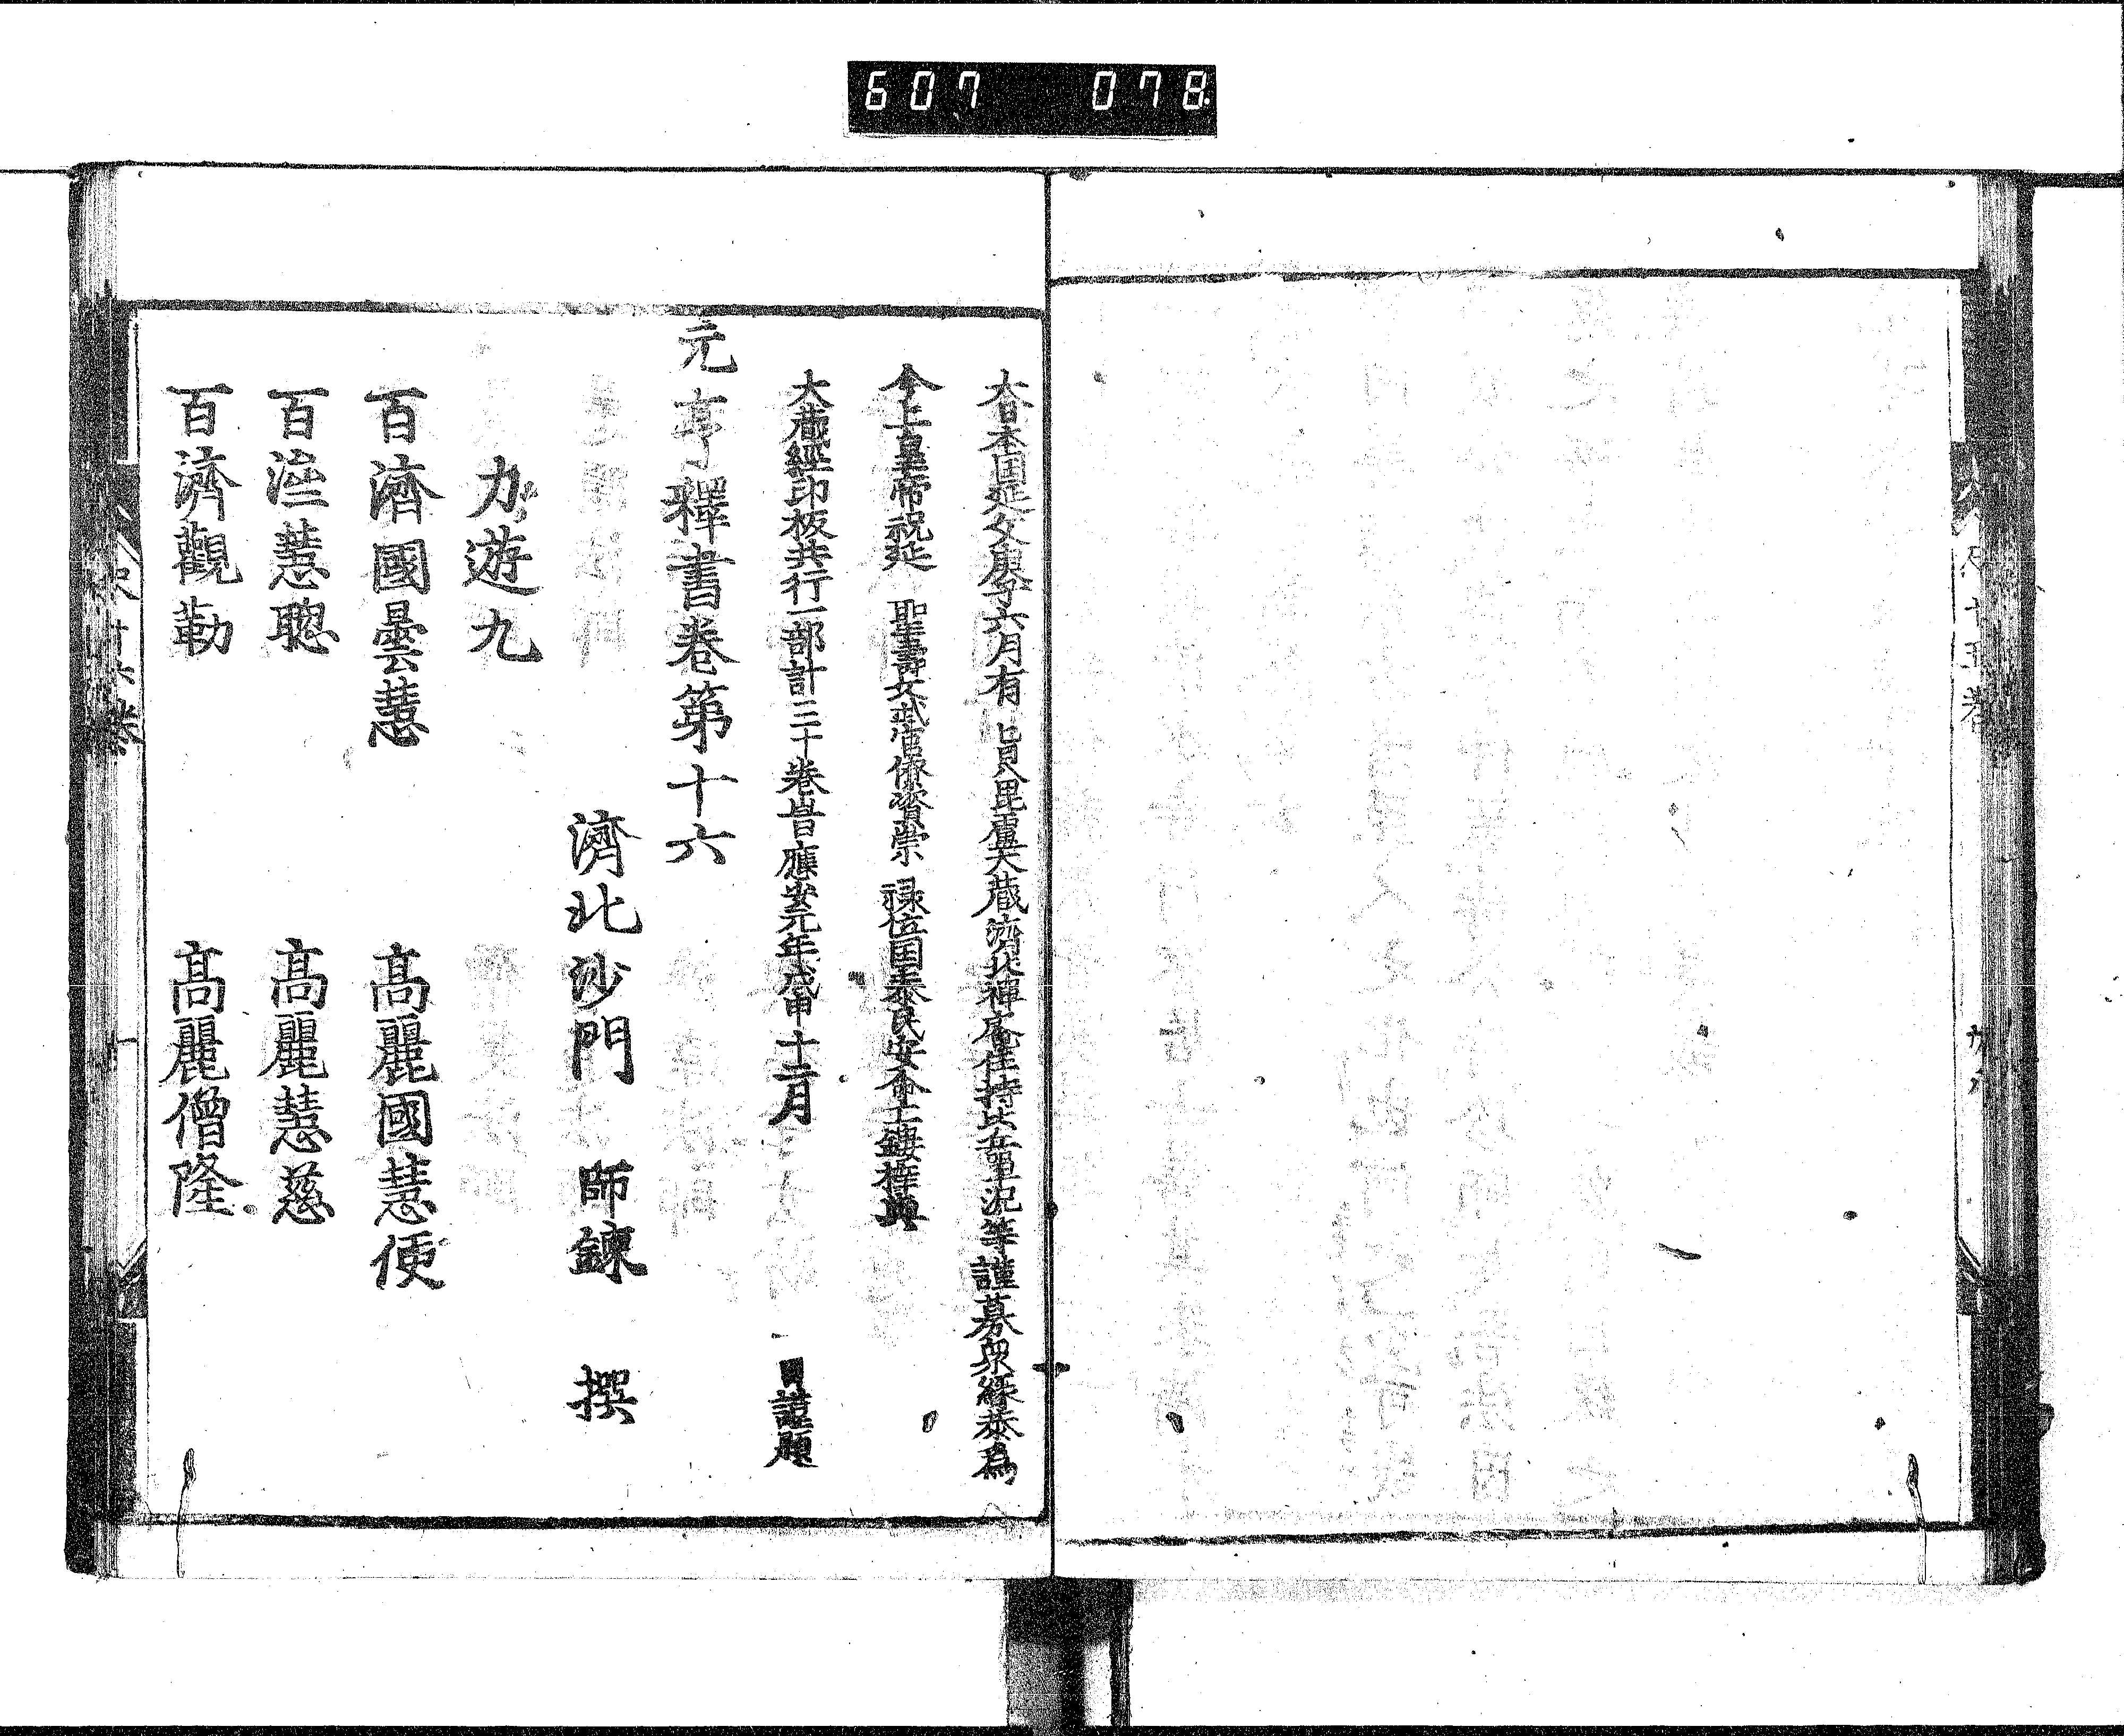 607 078
大日本国延文庚子六月有 旨貟毘盧大蔵済北禅庵住持比丘單况等謹募衆縁恭爲
今上皇帝祝延 聖壽文武官僚資崇 禄位国泰民安命工鏤梓與
大蔵經印板共行一部計三十卷旹應安元年戊申十二月 日謹題
元亨釋書卷第十六
濟北沙門 師錬 撰
力遊九
百濟國曇慧 高麗國慧便
百濟慧聰 高麗慧慈
百濟觀勒 高麗僧隆